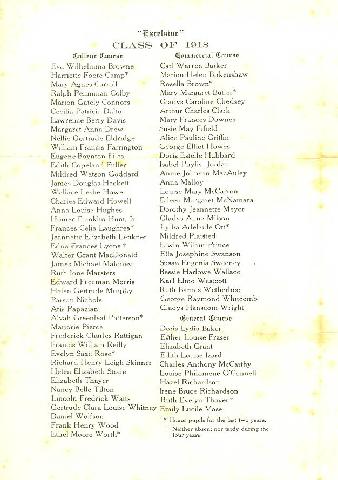 "Excelsior"
CLASS OF 1918
College Course
Eva Wilhelmina Browne
Harriette Foote Camp*
Mary Agnes Carroll
Ralph Penniman Colby
Marion Gately Connors
Cecilia Patricia
Lawrence Berry Davis
Margaret Anna Drew
Nellie Gertrude Eldredge
William Francis Farrington
Eugene Boynton
Edith Copeland Fuller
Mildred Watson Goddard
James Douglas Hackett
Wallace Leslie Howe
Charles Edward Howell
Anna Louise Hughes
Homer Franklin Hunt, Jr.
Frances Celia Laughrea*
Jeannette Elizabeth
Edna Frances Lyons*
Walter Grant MacDonald
James Michael Mahoney
Ruth Ione Marsters
Edward Freeman Morris
Helen Gertrude Murphy
Nichols
Aris Papazian
Greenleaf Patterson*
Marjorie Pierce
Frederick Charles Rattigan
Francis William Reilly
Evelyn Susie Rose*
Richard Henry Leigh Skinner
Helen Elizabeth Stone
Elizabeth Thayer
Nancy Belle Tilton
Lincoln Fredrick Watts
Gertrude Clara Louise Whitney
Daniel Wolfson
Frank Henry Wood
Ethel Moore Worth*
Commercial Course
Carl Warren Barker
Marion Helen Birkenshaw
Rosella Brown*
Mary Margaret Butler*
Gladys Caroline Chedsey
Arthur Charles Clark
Mary Frances Downes
Susie May Fifield
Alice Pauline Griffin
George Elliot Howes
Doris Estelle Hubbard
Isabel Phyllis Jordan
Annie Johnson MacAuley
Anna Malloy
Louise Mary McCarron
Eileen Margaret McNamara
Dorothy Jeannette Meyer
Gladys Anne Milson
Lydia Adelaide Orr*
Mildred Plaisted
Edwin Wilbur Prince
Ella Josephine Swanson
Susan Eugenia Sweeney
Bessie Harlowe Wallace
Karl Elmo Wescott
Ruth Bemis Wetherbee
George Raymond Whitcomb
Gladys Hanscom Wright
General Course
Doris Lydia Baker
Esther Louise Fraser
Elizabeth Grant
Edith Louise Izard
Charles Anthony McCarthy
Louise Philomene O'Connell
Hazel Richardson
Irene Bruce Richardson
Ruth Evelyn Thayer*
Emily Lucile Mose
* Honor pupils for the last two years.
Neither absent nor tardy during the
four years.